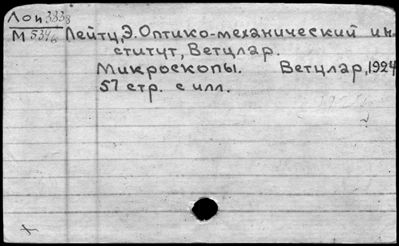 Лоп 333
М 534
Лейтц, Э. Оптико-механический ин-
ститут, Ветцлар.
Микроскопы. Ветцлар, 1924
57 стр. с илл.